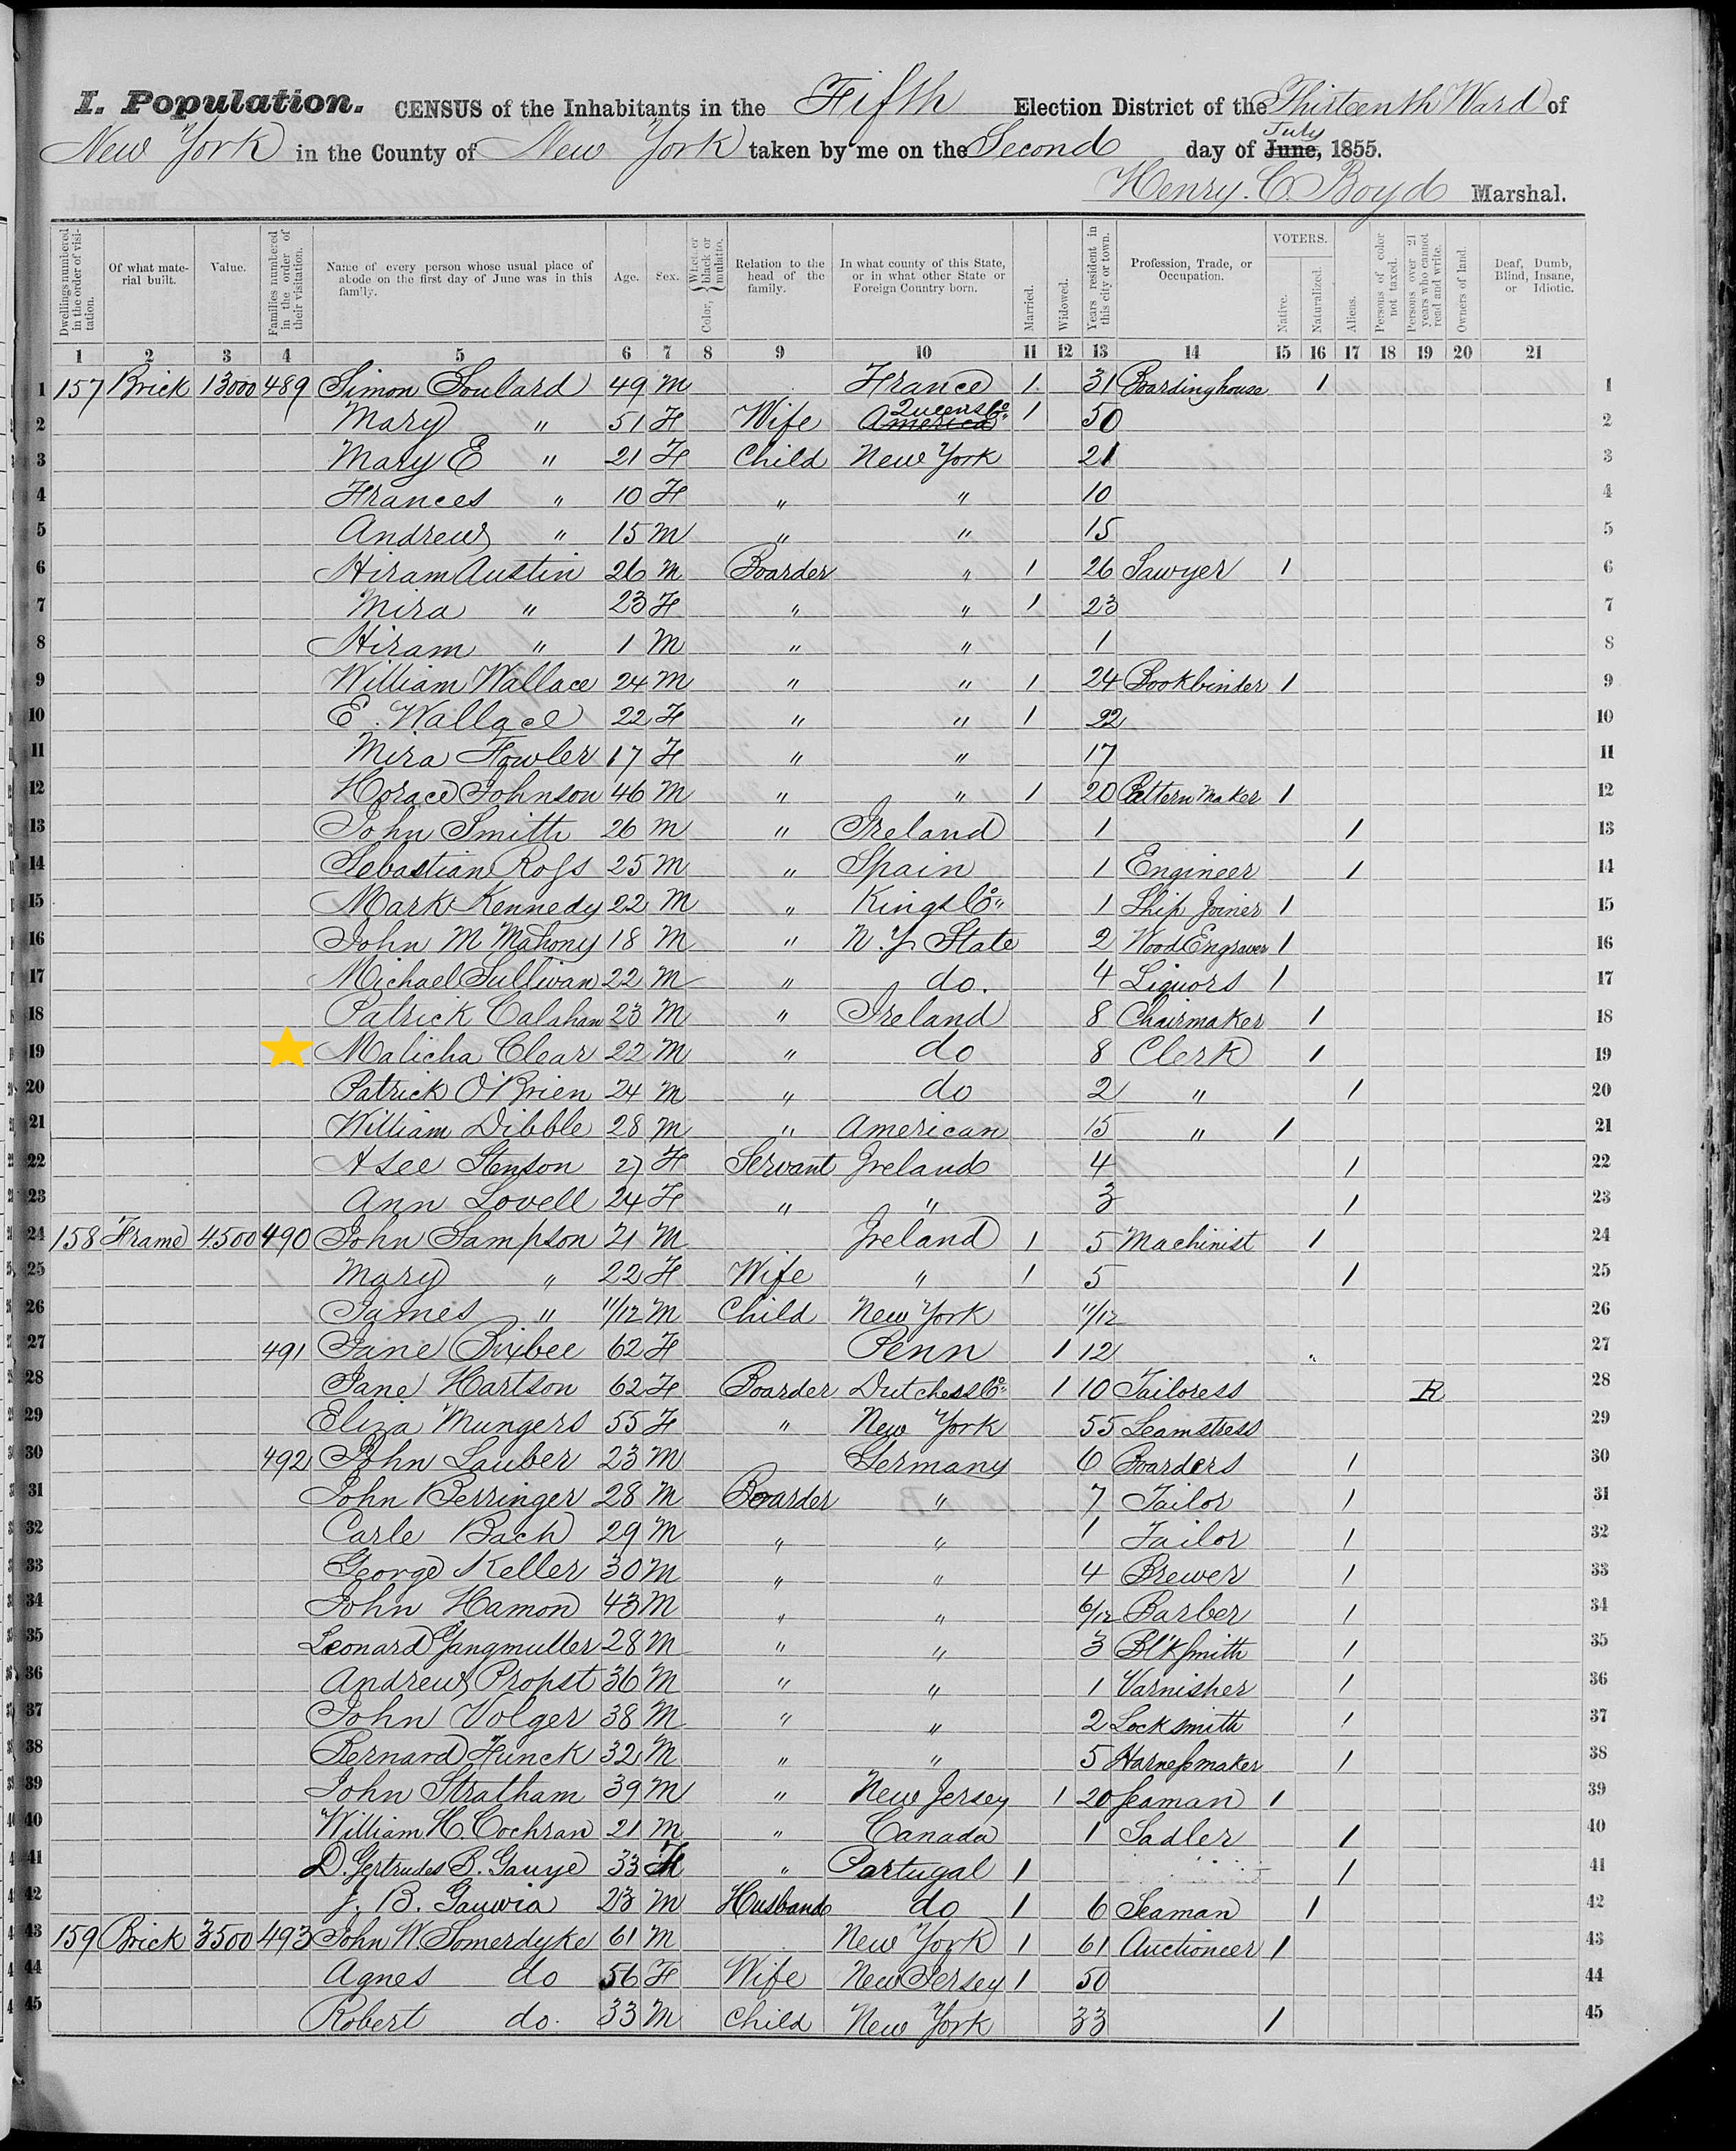 I. Population. CENSUS of the Inhabitants in the Fifth Election District of the Thirteenth Ward of
New York in the County of New York taken by me on the Second day of June, July 1855.
Henry. C Boyd Marshal.
Dwellings numbered in the order of visitation. Of what material built. Value. Families numbered in the order of their visitation. Name of every person whose usual place of abode on the first day of June was in this family. Age. Sex. Color, { Whether black or mulatto. Relation to the head of the family. In what county of this State, or in what other State or Foreign Country born. Married. Widowed. Years resident in this city or town. Profession, Trade, or Occupation. VOTERS. Native. Naturalized. Aliens. Persons of color not taxed. Persons over 21 years who cannot read and write. Owners of land. Deaf, Dumb, Blind, Insane, or Idiotic.
1 2 3 4 5 6 7 8 9 10 11 12 13 14 15 16 17 18 19 20 21
1 157 Brick 13000 489 Simon Soulard 49 M France 1 31 Boardinghouse 1 1
2 Mary " 51 F Wife America Queens Co 1 50 2
3 Mary E " 21 F Child New York 21 3
4 Frances " 10 F " " 10 4
5 Andrew " 15 M " " 15 5
6 Hiram Austin 26 M Boarder " 1 26 Sawyer 1 6
7 Mira " 23 F " " 1 23 7
8 Hiram " 1 M " " 1 8
9 William Wallace 24 M " " 1 24 Bookbinder 1 9
10 E. Wallace 22 F " " 1 22 10
11 Mira Fowler 17 F " " 17 11
12 Horace Johnson 46 M " " 1 20 Pattern Maker 1 12
13 John Smith 26 M " Ireland 1 1 13
14 Sebastian Ross 25 M " Spain 1 Engineer 1 14
15 Mark Kennedy 22 M " Kings Co 1 Ship Joiner 1 15
16 John M Mahony 18 M " N.Y State 2 Wood Engraver 1 16
17 Michael Sullivan 22 M " do. 4 Liquors 1 17
18 Patrick Calahan 23 M " Ireland 8 Chairmaker 1 18
19 Malicha Clear 22 M " do 8 Clerk 1 19
20 Patrick O'Brien 24 M " do 2 " 1 20
21 William Dibble 28 M " American 15 " 1 21
22 Stenson 27 F Servant Ireland 4 1 22
23 Ann Lovell 24 F " " 3 1 23
24 158 Frame 4500 490 John Sampson 21 M Ireland 1 5 Machinist 1 24
25 Mary " 22 F Wife " 1 5 1 25
26 James " 11/12 M Child New York 11/12 26
27 491 Jane Bixbee 62 F Penn 1 12 27
28 Jane Hartson 62 F Boarder Dutchess Co 1 10 Tailoress R 28
29 Eliza Mungers 55 F " New York 55 Seamstress 29
30 492 John Lauber 23 M Germany 6 Boarders 1 30
31 John Berringer 28 M Boarder " 7 Tailor 1 31
32 Carle Bach 29 M " " 1 Tailor 1 32
33 George Keller 30 M " " 4 Brewer 1 33
34 John Hamon 43 M " " 6/12 Barber 1 34
35 Leonard Yangmuller 28 M " " 3 Bl'ksmith 1 35
36 Andrew Propst 36 M " " 1 Varnisher 1 36
37 John Volger 38 M " " 2 Locksmith 1 37
38 Bernard Funck 32 M " " 5 Harnessmaker 1 38
39 John Stratham 39 M " New Jersey 1 20 Seaman 1 39
40 William H. Cochran 21 M " Canada 1 Sadler 1 40
41 D. Gertrudes B. Gauye 33 F " Portugal 1 1 41
42 J. B. Gauvia 23 M Husband do 1 6 Seaman 1 42
43 159 Brick 3500 493 John W. Somerdyke 61 M New York 1 61 Auctioneer 1 43
44 Agnes do 56 F Wife New Jersey 1 50 44
45 Robert do. 33 M Child New York 33 1 45